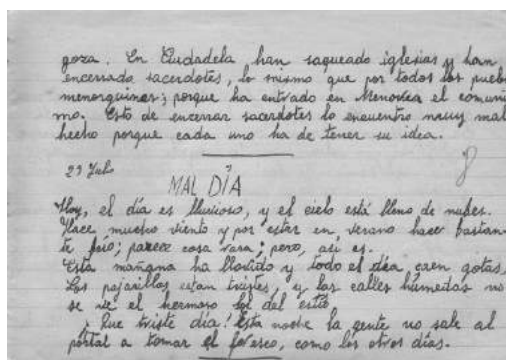 goza. En Ciudadela han saqueado iglesias y han
encerrado sacerdotes, lo mismo que por todos los pueblos
menorquines; porque ha entrado en Menorca el comunis
mo. Esto de encerrar sacerdotes lo encuentro muy mal
hecho porque cada uno ha de tener su idea.
29 Julio
MAL DÍA
Hoy, el día es lluvioso, y el cielo está lleno de nubes.
Hace mucho viento y por estar en verano hace bastan
te frío; parece cosa rara; pero, así es.
Esta mañana ha llovido y todo el día caen gotas,
Los pajarillos están tristes, y las calles húmedas no
se ve el hermoso sol del estío
¡Que triste día! Esta noche la gente no sale al
portal a tomar el fresco, como los otros días.